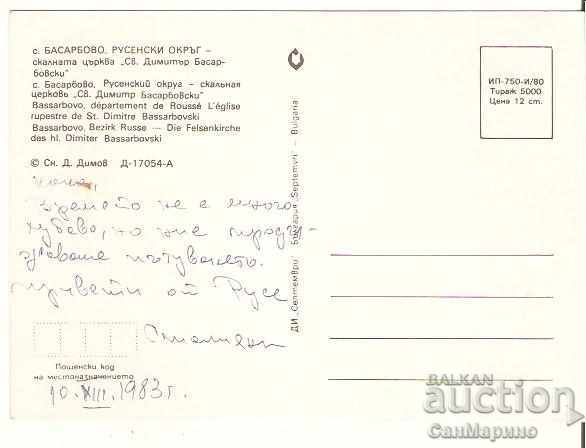 с. БАСАРБОВО, РУСЕНСКИ ОКРЪГ –
скалната църква „Св. Димитър Басар-
бовски"
с. Басарбово, Русенский округ – скальная
церковь „Св. Димитр Басарбовски"
Bassarbovo, département de Roussé L'église
rupestre de St. Dimitre Bassarbovski
Bassarbovo, Bezirk Russe — Die Felsenkirche
des hl. Dimiter Bassarbovski
© Сн. Д. Димов Д-17054-А
времето не е много
хубаво, но ние продъл-
жаваме пътуването.
Привети от Русе
Пощенски код
на местоназначението
10.XII.1983г.
ДИ „Септември" България "Septemvri" - Bulgaria
ИП-750-И/80
Тираж 5000
Цена 12 ст.
BALKAN
auction
СанМарино